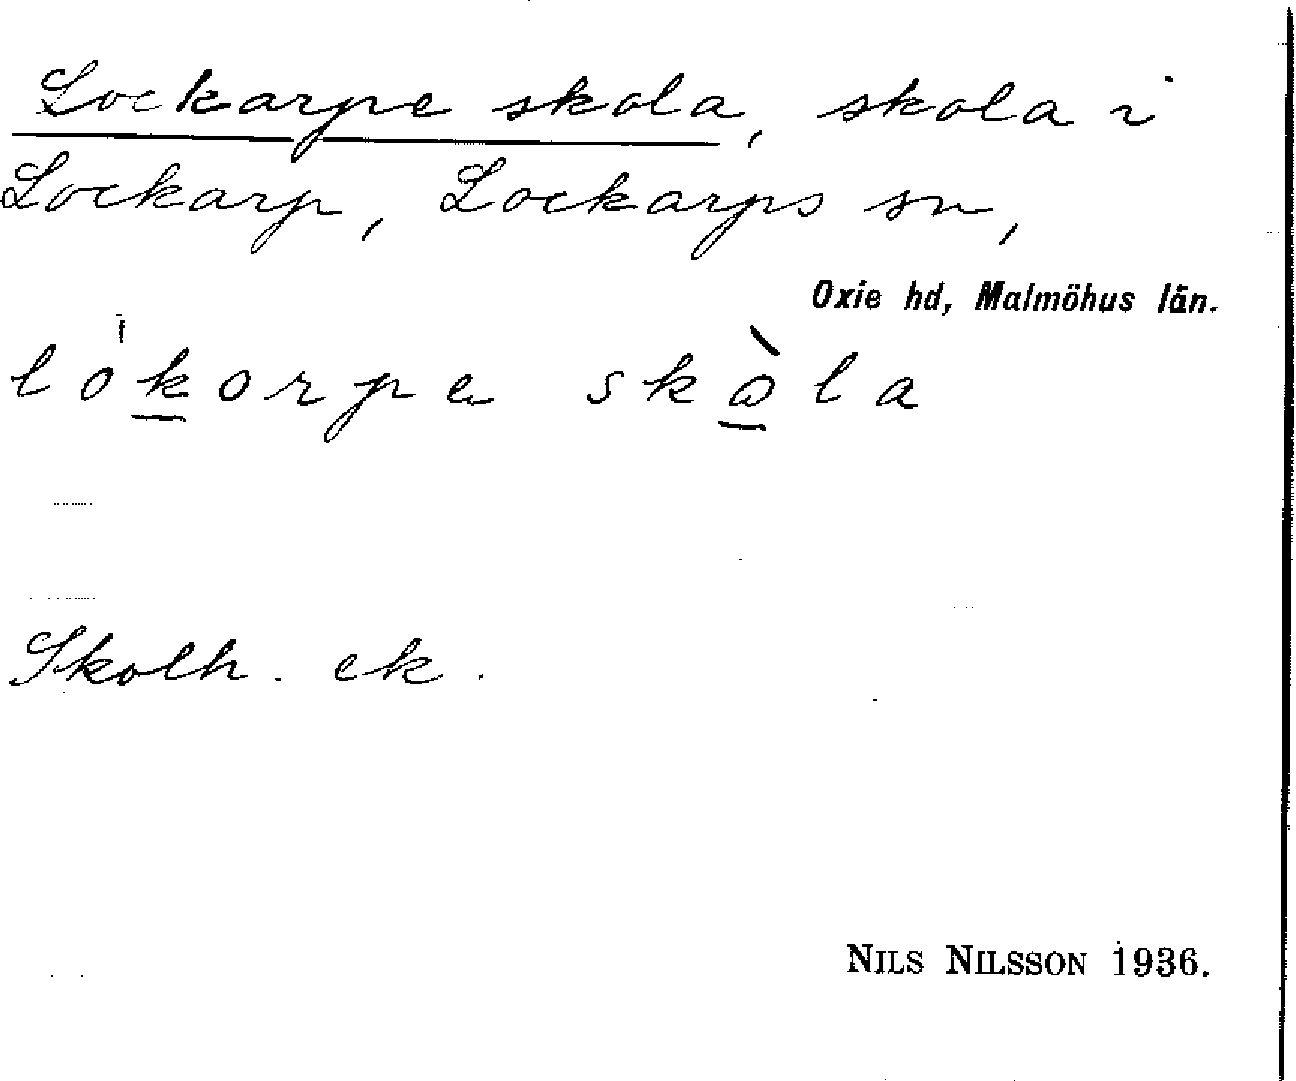 Lockarpe skola, skola i
Lockarp, Lockarps sn,
Oxie hd, Malmöhus län.
lo̍k̲orpe skò̲la
Skolh. ek.
NILS NILSSON 1936.